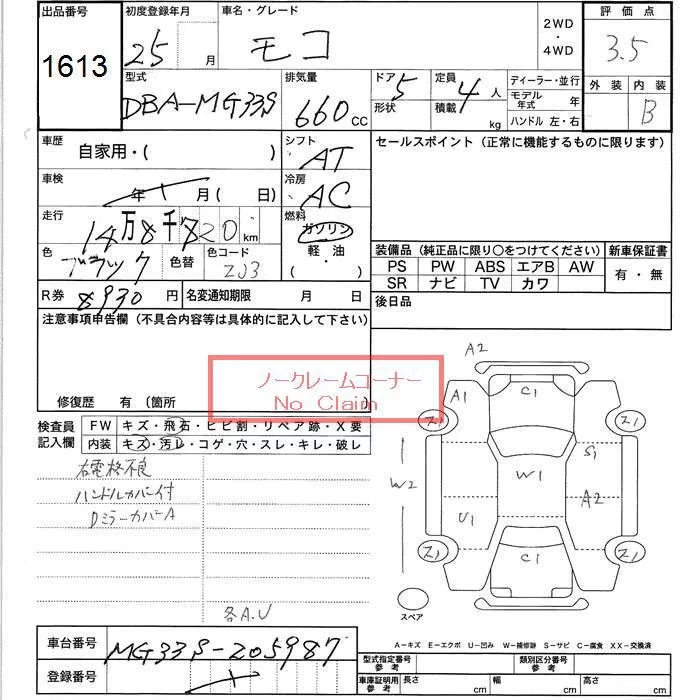 出品番号 初度登録年月 車名・グレード 2WD・4WD 評価点
1613 25月 モコ 3.5
型式 排気量 ドア 5 定員 4人 ディーラー・並行 外装 内装
DBA-MG33S 660cc 形状 積載 kg モデル年式 年 B
ハンドル 左・右
車歴 自家用・( ) シフト AT セールスポイント(正常に機能するものに限ります)
車検 年 月( 日) 冷房 AC
走行 14万8千820km 燃料 ガソリン
色 ブラック 色替 色コード ZJ3 軽油・( )
装備品(純正品に限り○をつけてください) 新車保証書
PS PW ABS エアB AW 有・無
SR ナビ TV カワ
R券 8930円 名変通知期限 月 日 後日品
注意事項申告欄(不具合内容等は具体的に記入して下さい)
ノークレームコーナー
No Claim
修復歴 有(箇所
検査員記入欄 FW キズ・飛石・ヒビ割・リペア跡・X要
内装 キズ・汚レ・コゲ・穴・スレ・キレ・破レ
右電格不良
ハンドルカバー付
DミラーカバーA
各A.U
A2
A1 C1
Z1 Z1
S1
W2 W1 A2
U1
Z1 C1 Z1
スペア
A-キズ E-エクボ U-凹み W-補修跡 S-サビ C-腐食 XX-交換済
車台番号 MG33S-205987
登録番号
型式指定番号 参考 類別区分番号 参考
車庫証明用 参考 長さ cm 幅 cm 高さ cm